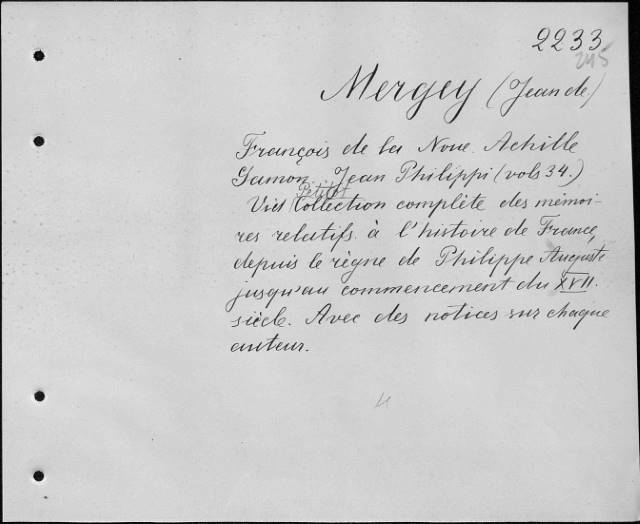 2233
245
Mergey (Jean de)
François de la Noue. Achille
Gamon. Jean Philippi (vols 34.)
Petitot
Vid Collection complète des mémoi-
res relatifs à l'histoire de France,
depuis le règne de Philippe Auguste
jusqu'au commencement du XVII.
siècle. Avec des notices sur chaque
auteur.